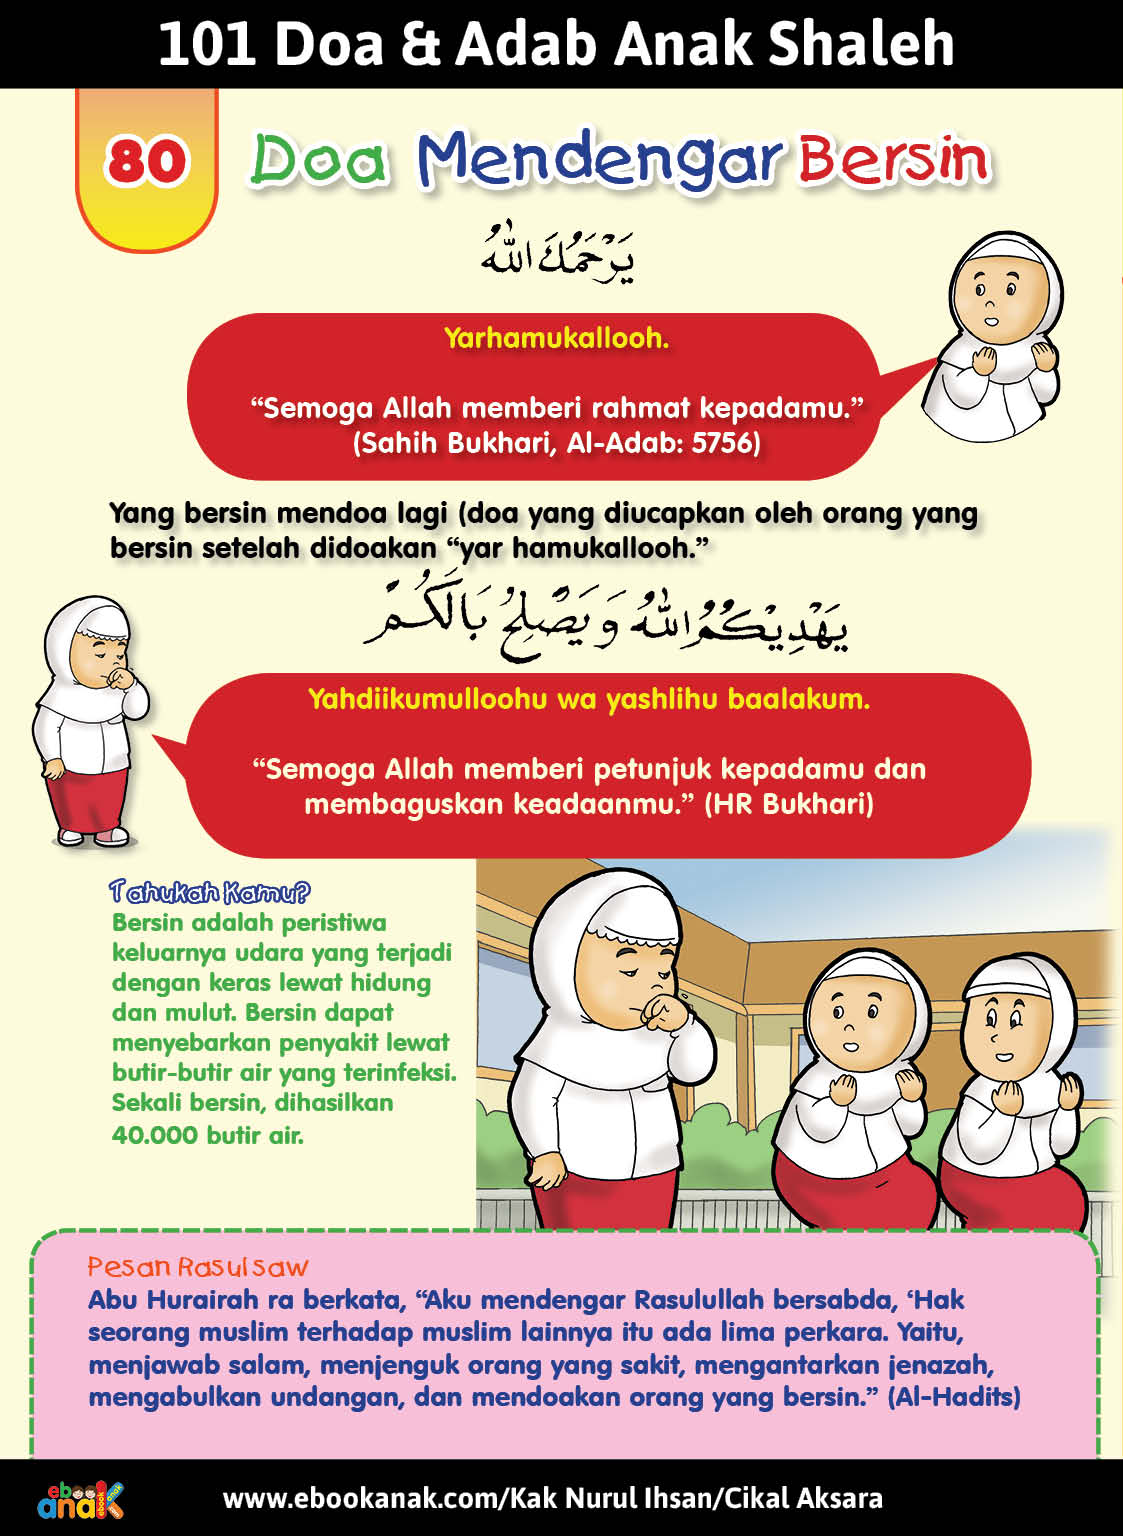 101 Doa & Adab Anak Shaleh
80
Doa Mendengar Bersin
يَرْحَمُكَ اللّٰهُ
Yarhamukallooh.
“Semoga Allah memberi rahmat kepadamu.”
(Sahih Bukhari, Al-Adab: 5756)
Yang bersin mendoa lagi (doa yang diucapkan oleh orang yang
bersin setelah didoakan “yar hamukallooh.”
يَهْدِيْكُمُ اللّٰهُ وَيُصْلِحُ بَالَكُمْ
Yahdiikumulloohu wa yashlihu baalakum.
“Semoga Allah memberi petunjuk kepadamu dan
membaguskan keadaanmu.” (HR Bukhari)
Tahukah Kamu?
Bersin adalah peristiwa
keluarnya udara yang terjadi
dengan keras lewat hidung
dan mulut. Bersin dapat
menyebarkan penyakit lewat
butir-butir air yang terinfeksi.
Sekali bersin, dihasilkan
40.000 butir air.
Pesan Rasul saw
Abu Hurairah ra berkata, “Aku mendengar Rasulullah bersabda, ‘Hak
seorang muslim terhadap muslim lainnya itu ada lima perkara. Yaitu,
menjawab salam, menjenguk orang yang sakit, mengantarkan jenazah,
mengabulkan undangan, dan mendoakan orang yang bersin.” (Al-Hadits)
ebook
anak
www.ebookanak.com/Kak Nurul Ihsan/Cikal Aksara